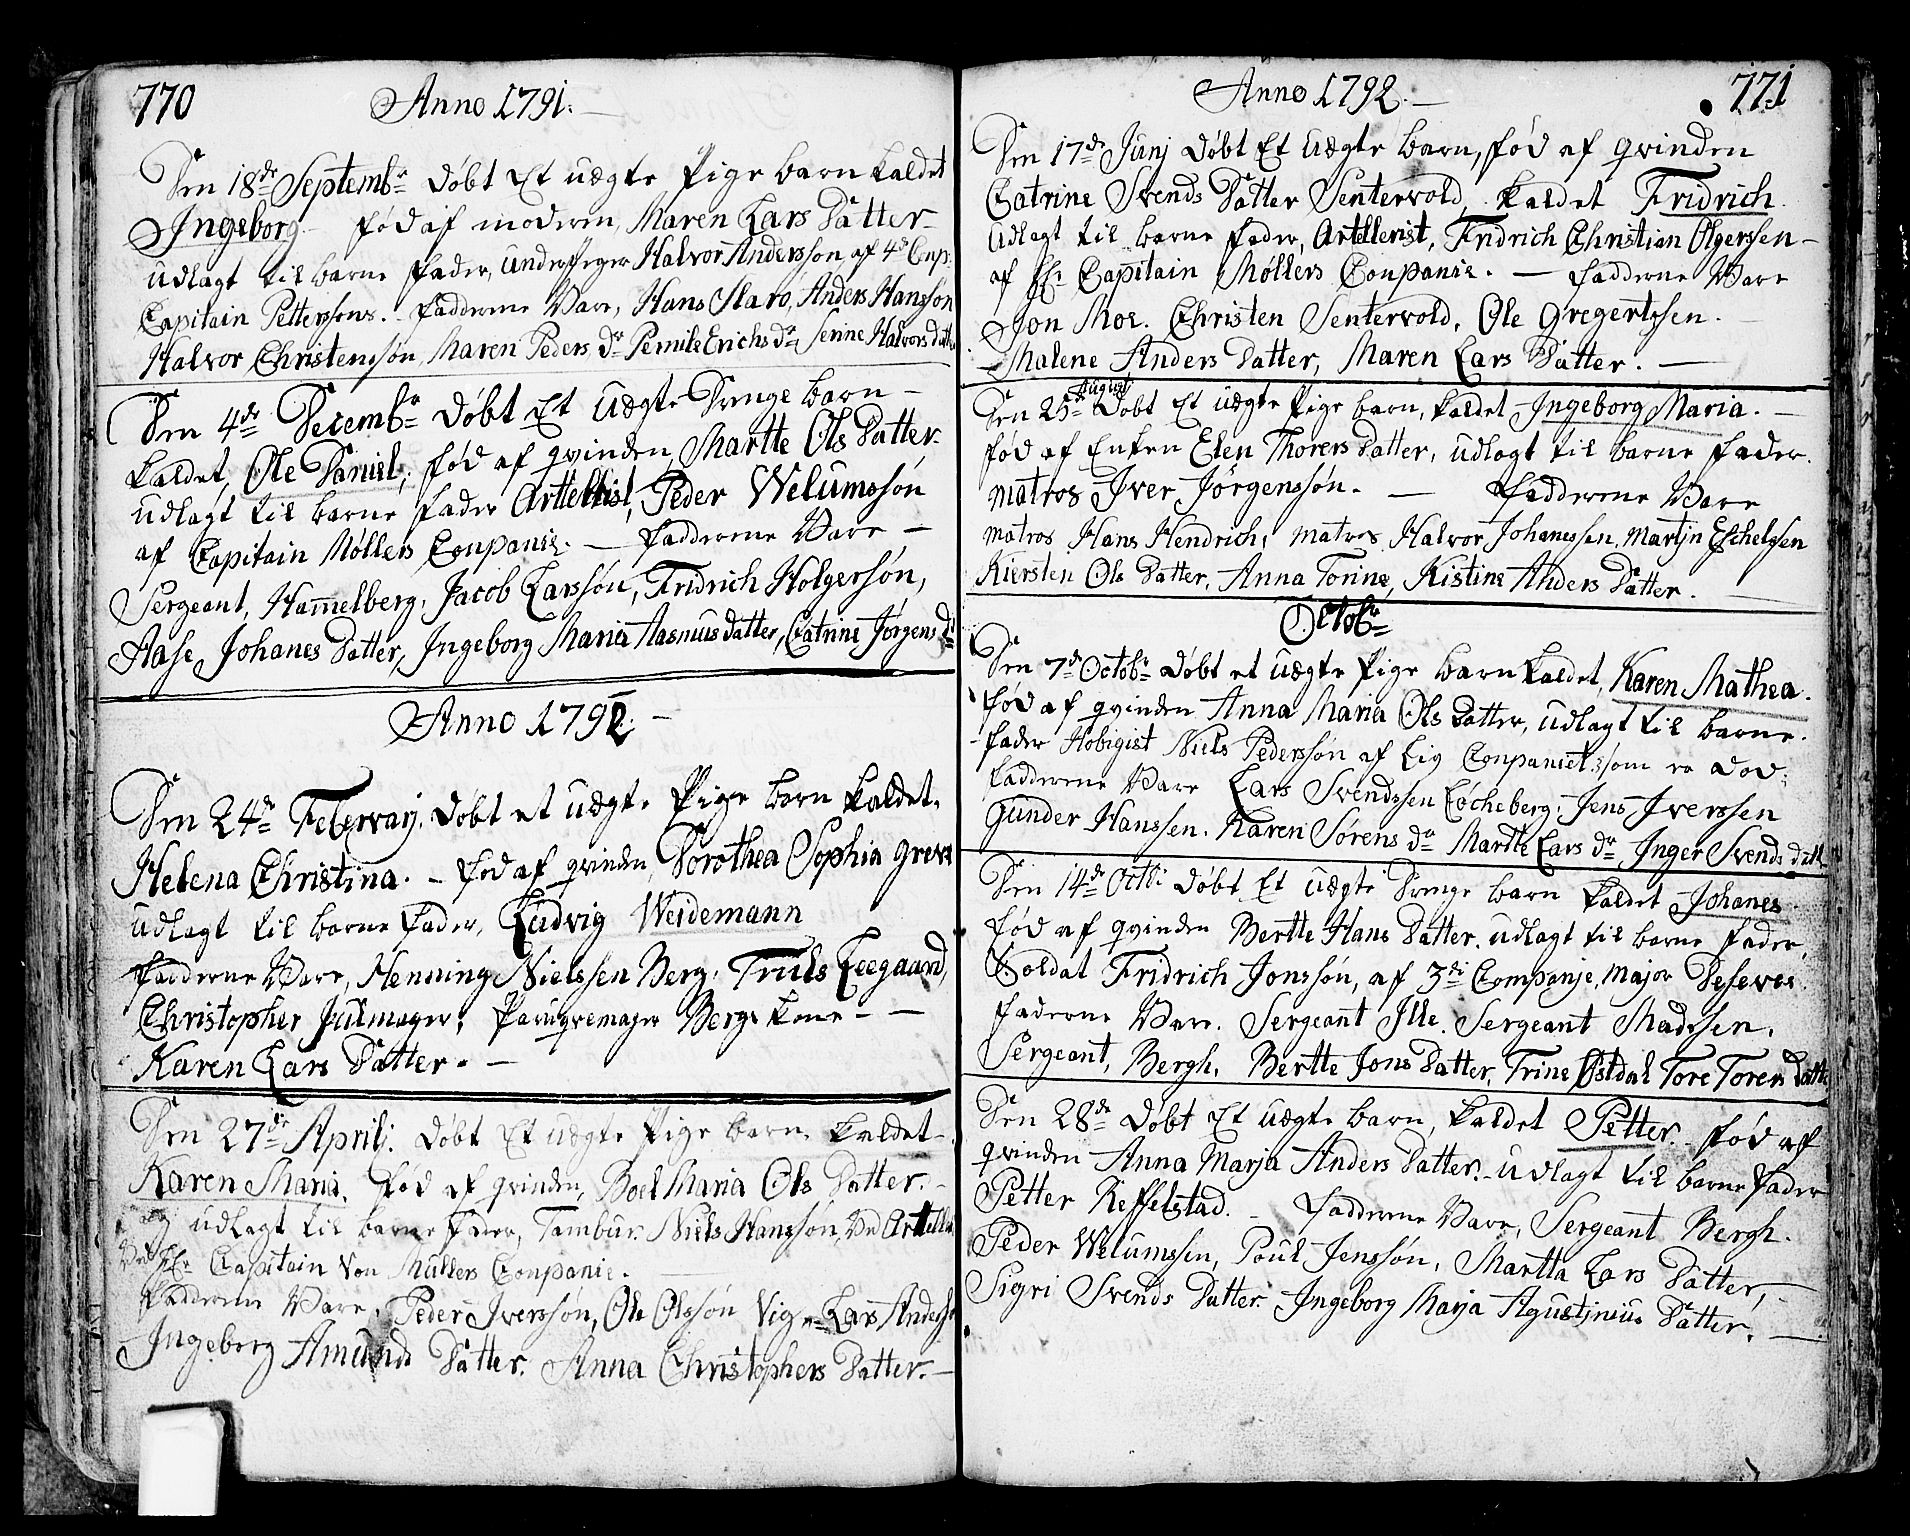 770
Anno 1791.
Den 18de Septembr døbt Et uægte Pige barn kaldet
Ingeborg fød af moderen, Maren Lars Datter
udlagt til barne fader, Halvor Andersson af 4de Comp.
Capitain Petterssens. Fadderne Vare, Hans Staró, Anders Hansson
Halvor Christensøn, Maren Peders dr Pernile Erichs dr, Senne Halvors datter
Den 4de Decembr døbt Et uægte Drenge barn
kaldet, Ole Daniel, fød af qvinden Martte Ols Datter.
udlagt til barne fader Arttellist, Peder Welumssøn
af Capitain Møllers Companie. Fadderne Vare
Sergeant, Hammelberg, Jacob Larssøn, Fridrich Holgersøn,
Aase Johanes Datter, Ingeborg Maria Aasmus datter, Catrine Jørgens dr
Anno 1792.
Den 24de Februarj. døbt et uægte Pige barn kaldet.
Helena Christina. fød af qvinden, Dorothea Sophia Greve
udlagt til barne fader, Ludvig Weidemann
Fadderne Vare, Henning Nielssen Berg, Truls Leegaard,
Christopher Julmager, Paruqvemager Bergs kone
Karen Lars Datter.
Den 27de Aprili. døbt Et uægte Pige barn kaldet
Karen Maria. fød af qvinden, Boel Maria Ols Datter.
udlagt til barne fader, Tambur. Niels Hanssøn, Ved Artelle
Ved Hr Capitain Von Müllers Companie.
Fadderne Vare, Peder Iverssøn, Ole Olssøn Vig, Lars Anderss
Ingeborg Amunds Datter. Anna Christophers Datter.
Anno 1792.
771
Den 17de Junj døbt Et uægte barn, fød af qvinden
Catrine Svends Datter Sentervold, kaldet Fridrich
Udlagt til barne fader, Artellerist, Fridrich Christian Olgerssen
af Hr Capitain Møllers Companie. Fadderne Vare
Jon Moe. Christen Sentervold, Ole Gregertssen.
Malene Anders Datter, Maren Lars Datter.
August
Den 25de Døbt Et uægte Pige barn, kaldet Ingeborg Maria.
fød af Enken Elen Thorers Datter, udlagt til barne fader.
matros Iver Jörgenssön. Fadderne Vare
matros Hans Hendrich, matros Halvor Johanessen, Martjn Eschelssen
Kiersten Ols Datter, Anna Torine, Kistine Anders Datter.
Octobr
Den 7de Octobr døbt et uægte Pige barn kaldet, Karen Mathea.
fød af qvinden Anna Maria Ols Datter, udlagt til barne
fader Hobigist Niels Pederssøn af Liv Companiet, som er død.
Fadderne Vare Lars Svendssen Løcheberg, Jens Iverssen
Gunder Hanssen. Karen Sørens dr Marthe Lars dr, Inger Svends datt.
Den 14de Octb: døbt Et uægte Drenge barn kaldet Johanes.
fød af qvinden Bertte Hans Datter, udlagt til barne fader,
Soldat Fridrich Jonssøn, af 3die Companie, Major
Faderne Vare. Sergeant Ille. Sergeant Madssen.
Sergeant, Bergh. Bertte Jons Datter, Trine Østdal Tore Tores Datte
Den 28de døbt Et uægte barn, kaldet Petter. fød af
qvinden Anna Marja Anders Datter. udlagt til barne fader
Petter Keffelstad. Fadderne Vare, Sergeant Bergh.
Peder Welumssen, Poul Jenssøn, Martta Lars Datter,
Sigri Svends Datter. Ingeborg Marja Agustjnius Datter.